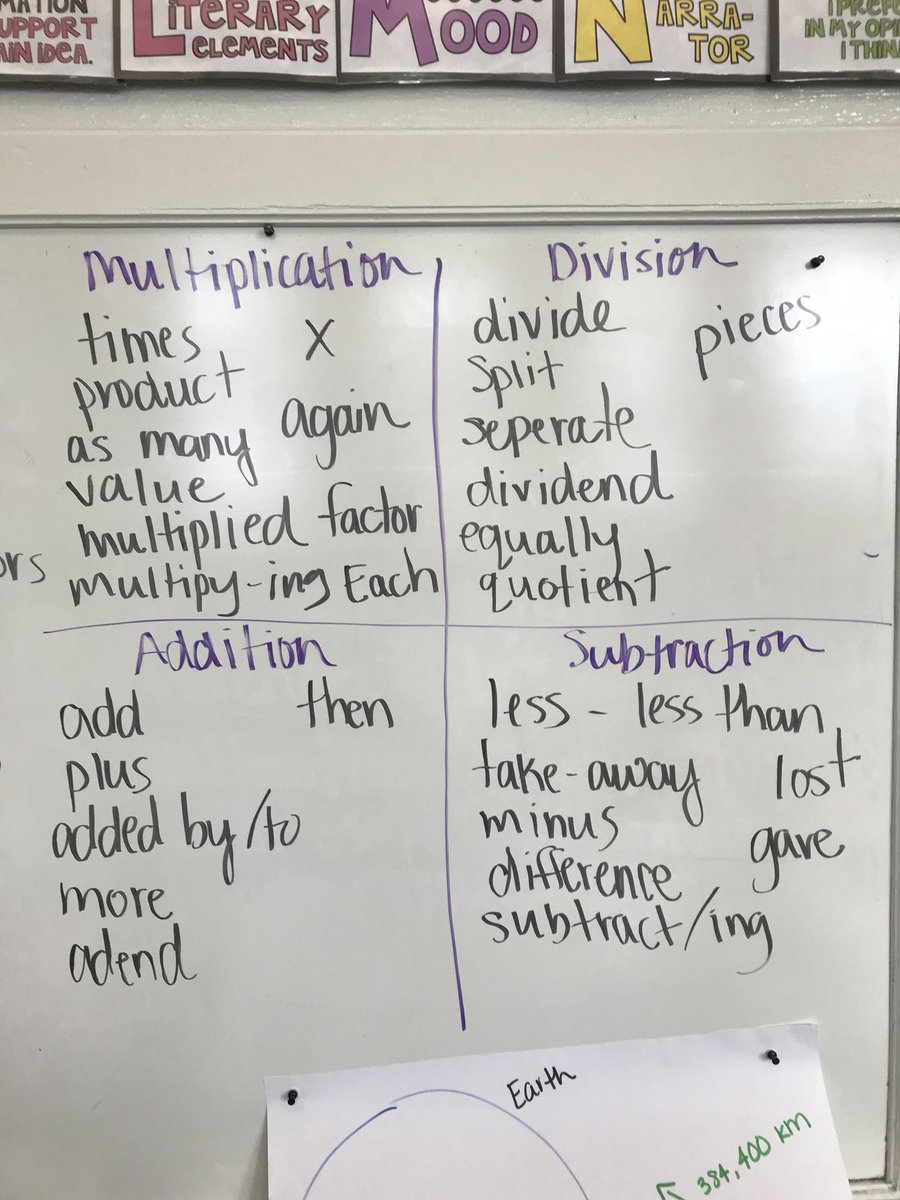 MATION
SUPPORT
AIN IDEA.
LITERARY
ELEMENTS
MOOD
NARRA-
TOR
I PREFE
IN MY OPI
I THIN
Multiplication
times X
product
as many again
value
multiplied factor
multipy-ing Each
ors
Division
divide pieces
Split
seperate
dividend
equally
quotient
Addition
add then
plus
added by/to
more
adend
Subtraction
less - less than
take-away lost
minus
difference gave
subtract/ing
Earth
384,400 km